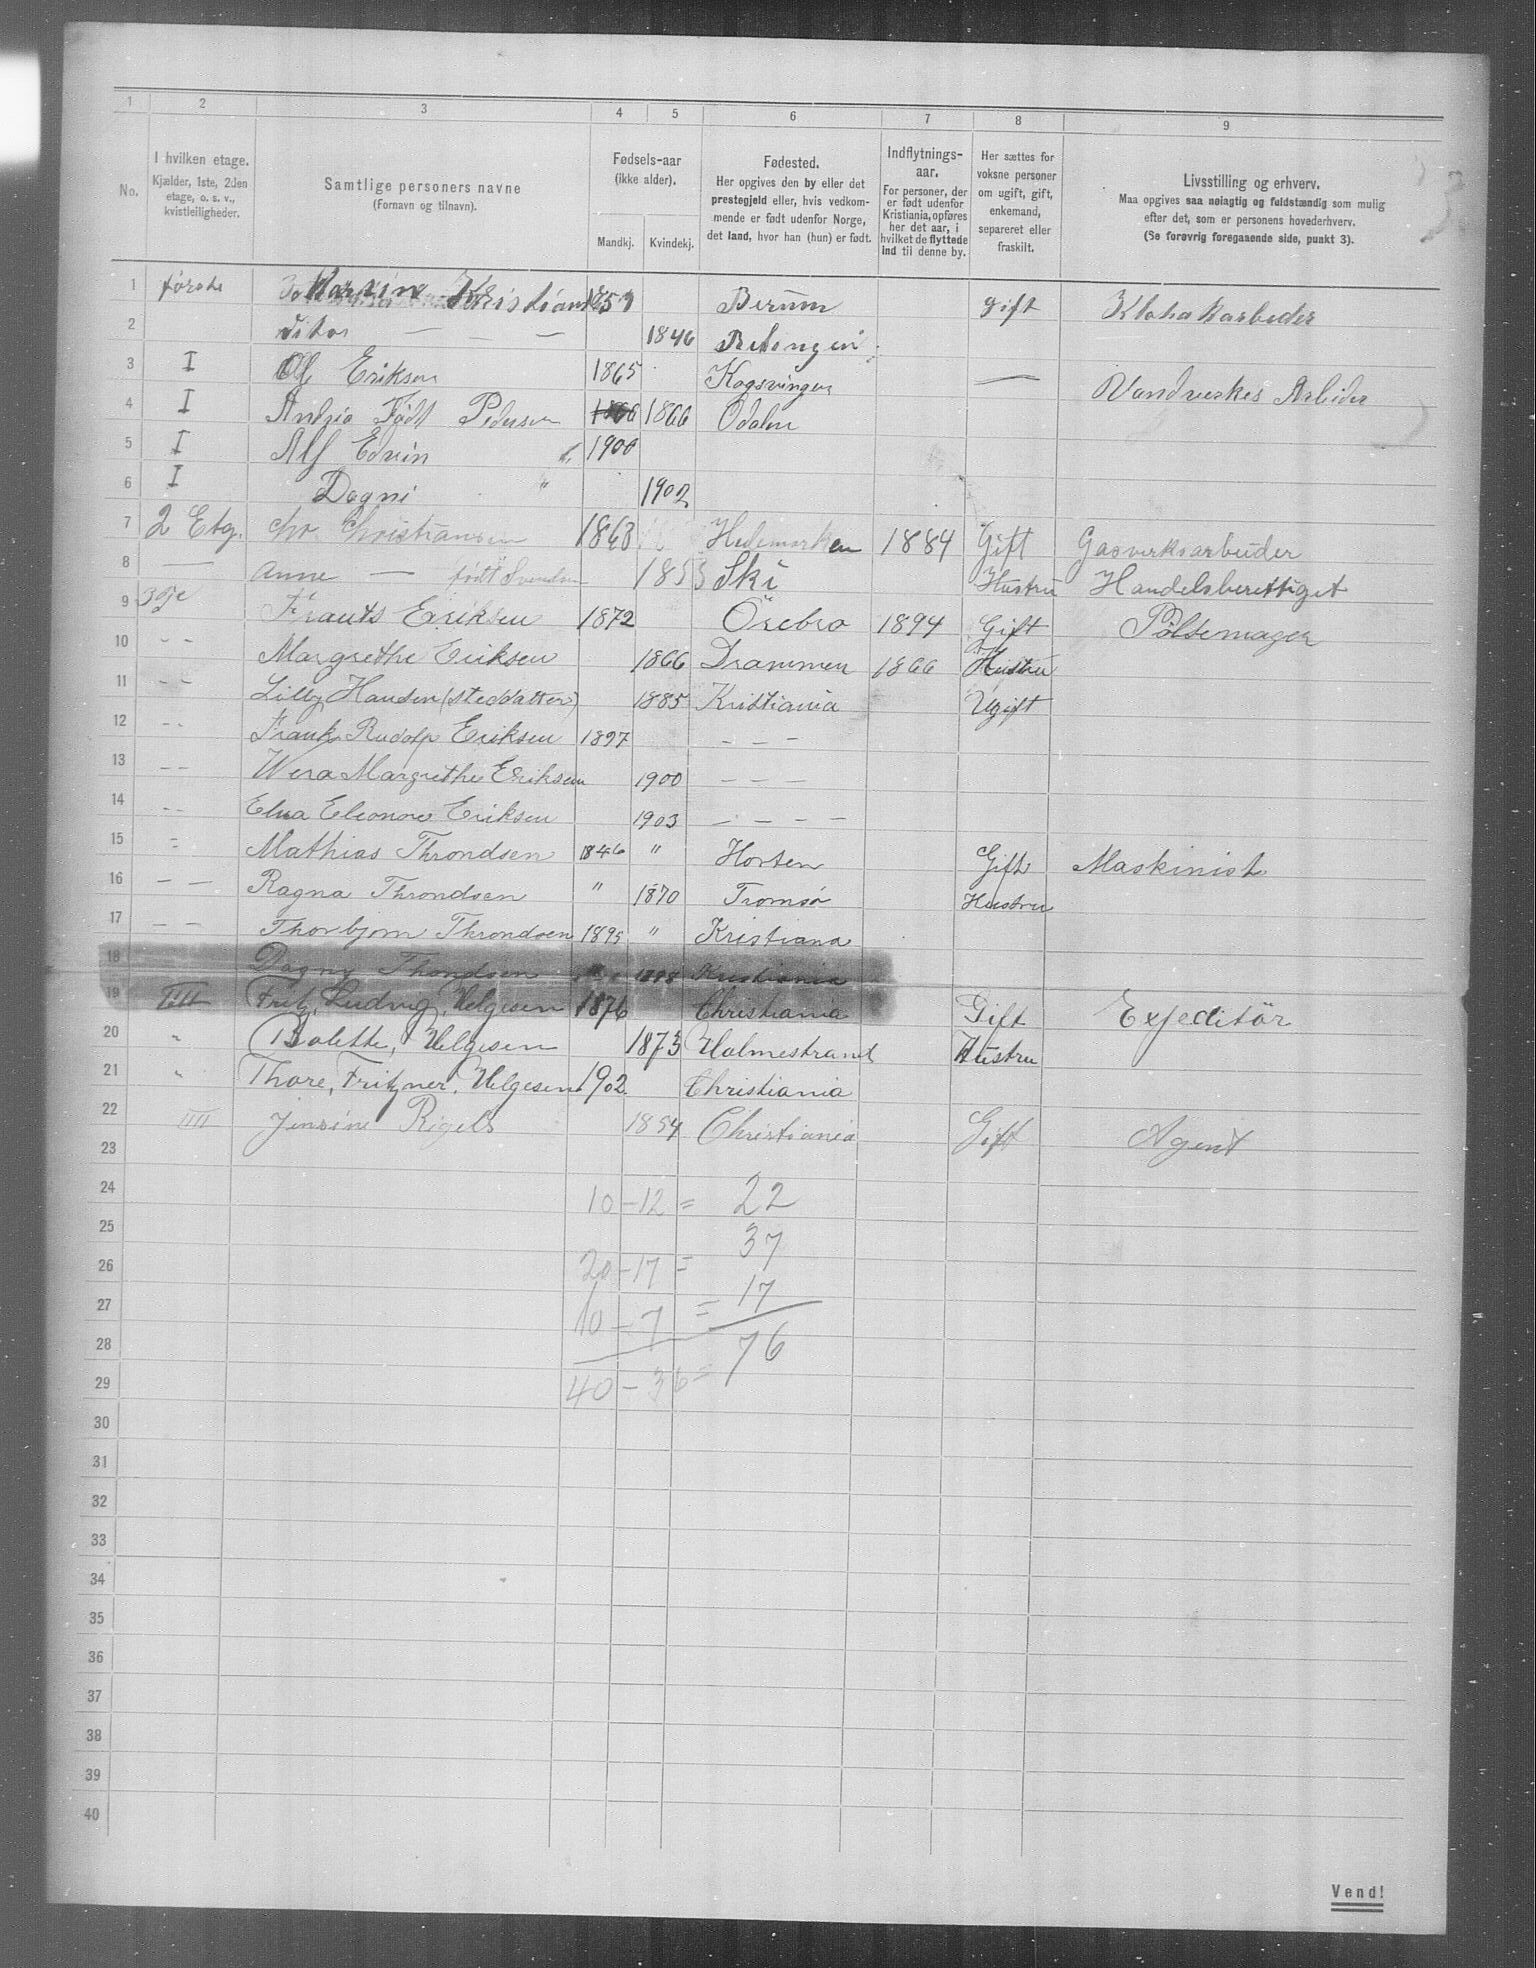 1 2 3 4 5 6 7 8 9
No.
I hvilken etage.
Kjælder, 1ste, 2den
etage, o. s. v.,
kvistleiligheder.
Samtlige personers navne
(Fornavn og tilnavn).
Fødsels-aar
(ikke alder).
Mandkj. Kvindekj.
Fødested.
Her opgives den by eller det
prestegjeld eller, hvis vedkom-
mende er født udenfor Norge,
det land, hvor han (hun) er født.
Indflytnings-
aar.
For personer, der
er født udenfor
Kristiania, opføres
her det aar, i
hvilket de flyttede
ind til denne by.
Her sættes for
voksne personer
om ugift, gift,
enkemand,
separeret eller
fraskilt.
Livsstilling og erhverv.
Maa opgives saa nøiagtig og fuldstændig som mulig
efter det, som er personens hovederhverv.
(Se forøvrig foregaaende side, punkt 3).
1 første Berum gift
2 — — 1846
3 I Ole Eriksen 1865 Kogsvinger — Vandverkes Arbeider
4 I Født Pedersen 1866 1866 Odalen
5 I Alf Edvin " 1900
6 I Dagni " 1902
7 2 Etg. Chr. Christiansen 1863 Hedemarken 1884 Gift Gasverksarbeider
8 — Anne — født Svendsen 1853 Ski Hustru Handelsberettiget
9 3dje Frants Eriksen 1872 Örebro 1894 Gift Pølsemager
10 - - Margrethe Eriksen 1866 Drammen 1866 Hustru
11 - - Lilly Hansen (steddatter) 1885 Kristiania Ugift
12 - - Frank Rudolf Eriksen 1897 — — —
13 - - Wera Margrethe Eriksen 1900 — — —
14 - - Elna Eleonore Eriksen 1903 — — — —
15 - Mathias Throndsen 1846 " Horten Gift Maskinist
16 — — Ragna Throndsen " 1870 Tromsø Hustru
17 — — Thorbjørn Throndsen 1895 " Kristiana
18 Dagny Thondsen " 1898 Kristiania
19 IIII Fritz, Ludvig, Helgesen 1876 Christiania Gift Expeditör
20 " Bolette, Helgesen 1873 Holmestrand Hustru
21 " Thore, Fritzner, Helgesen 1902 Christiania
22 IIII Jensine Rigels 1854 Christiania Gift Agent
23
24 10 — 12 = 22
25 37
26 20 — 17 =
27 10 — 7 = 17
28 76
29 40 — 36 =
30
31
32
33
34
35
36
37
38
39
40
Vend!